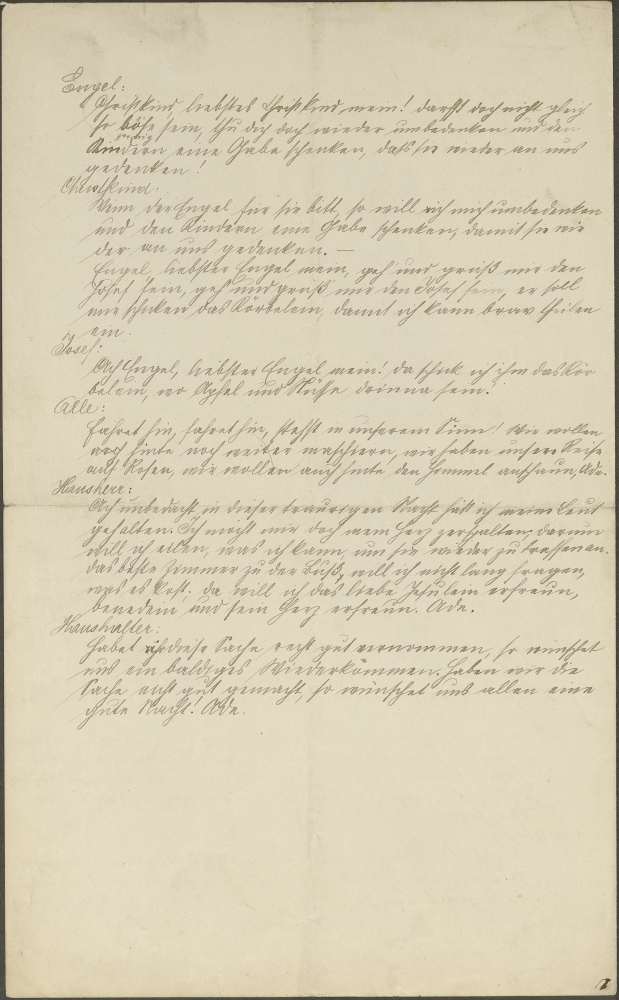 Engel:
Christkind, liebstes Christkind mein! darfst doch nicht gleich
so böse sein, thu dich doch wieder umbedenken und den
Kindern eine Gabe schenken, daß sie wieder an uns
gedenken!
Christkind:
Wenn der Engel für sie bitt, so will ich mich umbedenken
und den Kindern eine Gabe schenken, damit sie wie
der an uns gedenken. —
Engel, liebster Engel mein, geh' und grüß mir den
Josef fein, geh' und grüß' mir den Josef fein, er soll
mir schicken das Körbelein, damit ich kann brav theilen
ein.
Josef:
Ach Engel, liebster Engel mein! da schick ich ihm das Kör
belein, wo Apfel und Nüsse drinna sein.
Alle:
Fahret hin, fahret hin, stehst in unserem Sinn! Wir wollen
auch heute noch weiter maschieren, wir haben unsere Reise
auf Rosen, wir wollen auch heute den Himmel anschaun, Ade.
Hausherr:
Ach unbedacht in dieser traurigen Nacht hätt ich meine Leut
gehalten. Ich möcht mir doch mein Herz zerspalten, darum
will ich eilen, was ich kann, um sie wieder zu treffen an.
das beste Zimmer zu der Büß, will ich nicht lang fragen,
was es kost; da will ich das liebe Jesulein erfreun,
benedein und sein Herz erfreun. Ade.
Haushalter:
Habet ihr diese Sache recht gut vernommen, so wünschet
uns ein baldiges Wiederkommen. Haben wir die
Sache nicht gut gemacht, so wünschet uns allen eine
gute Nacht! Ade.